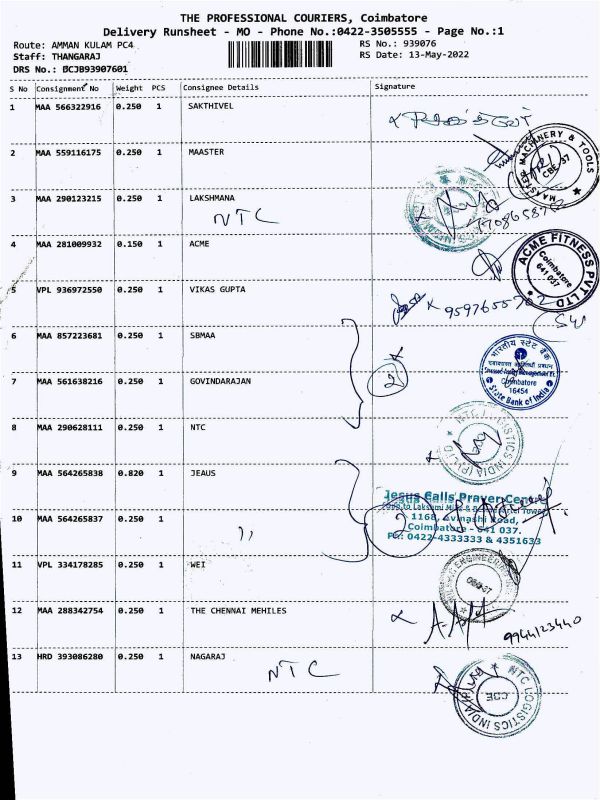 THE PROFESSIONAL COURIERS, Coimbatore
Delivery Runsheet - MO - Phone No.:0422-3505555 - Page No.:1
Route: AMMAN KULAM PC4 RS No.: 939076
Staff: THANGARAJ RS Date: 13-May-2022
DRS No.: BCJB93907601
S No Consignment No Weight PCS Consignee Details Signature
1 MAA 566322916 0.250 1 SAKTHIVEL
2 MAA 559116175 0.250 1 MAASTER
MAASTER MACHINERY & TOOLS
CBE-37
3 MAA 290123215 0.250 1 LAKSHMANA
NTC
4 MAA 281009932 0.150 1 ACME
ACME FITNESS PVT LTD
Coimbatore
641 037
5 VPL 936972550 0.250 1 VIKAS GUPTA
6 MAA 857223681 0.250 1 SBMAA
भारतीय स्टेट बैंक
Coimbatore
16454
State Bank of India
7 MAA 561638216 0.250 1 GOVINDARAJAN
2
8 MAA 290628111 0.250 1 NTC
NTC LOGISTICS INDIA (P) LTD
9 MAA 564265838 0.820 1 JEAUS
Jesus Calls Prayer Centre
10 MAA 564265837 0.250 1 ,,
2
1168, Avinashi Road,
Coimbatore - 641 037.
PH: 0422-4333333 & 4351633
11 VPL 334178285 0.250 1 WEI
12 MAA 288342754 0.250 1 THE CHENNAI MEHILES
9944123440
13 HRD 393086280 0.250 1 NAGARAJ
NTC
NTC LOGISTICS INDIA
CBE